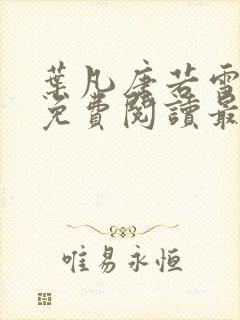 葉凡唐若雪
免費閱讀最
唯易永恒